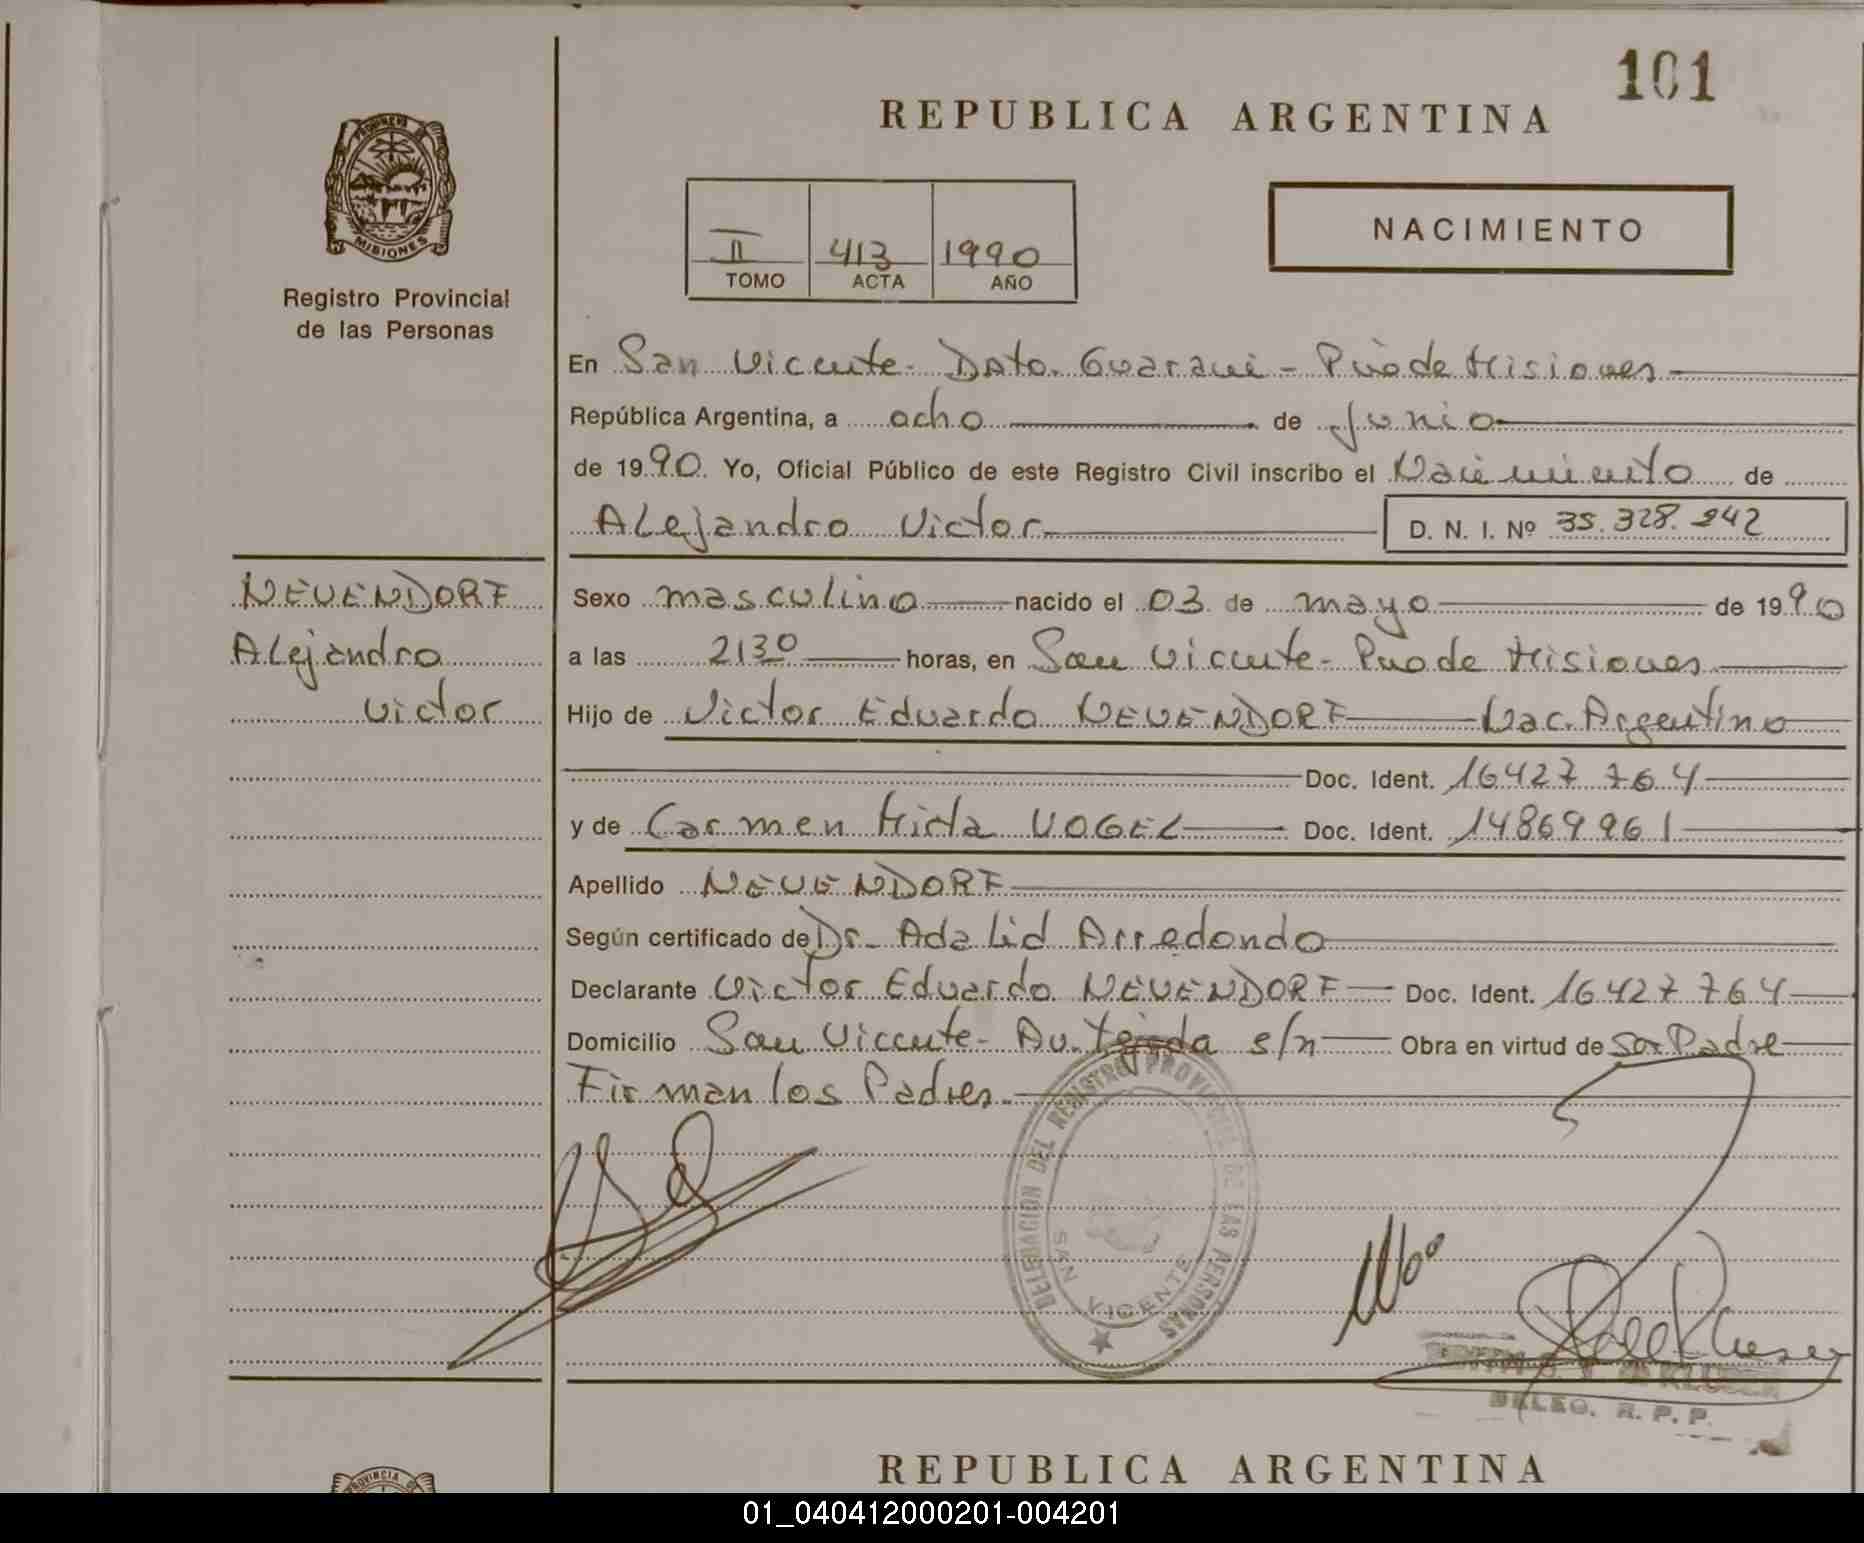 101
REPUBLICA ARGENTINA
PROVINCIA DE
MISIONES
Registro Provincial
de las Personas
II 413 1990
TOMO ACTA AÑO
NACIMIENTO
En San Vicente - Dpto. Guaraní - Pcia de Misiones
República Argentina, a ocho de Junio
de 1990. Yo, Oficial Público de este Registro Civil inscribo el Nacimiento de
Alejandro Victor D. N. I. Nº 35.328.242
NEUENDORF
Alejandro
Victor
Sexo masculino nacido el 03 de mayo de 1990
a las 2130 horas, en San Vicente - Pcia de Misiones
Hijo de Victor Eduardo NEUENDORF Nac. Argentino
Doc. Ident. 16427764
y de Carmen Mirta VOGEL Doc. Ident. 14869961
Apellido NEUENDORF
Según certificado de Dr. Adalid Arredondo
Declarante Victor Eduardo NEUENDORF Doc. Ident. 16427764
Domicilio San Vicente - Av. Tejeda s/n Obra en virtud de Ser Padre
Firman los Padres.
DELEGACION DEL REGISTRO PROVINCIAL DE LAS PERSONAS
SAN VICENTE
DELEG. R. P. P.
REPUBLICA ARGENTINA
PROVINCIA
01_040412000201-004201